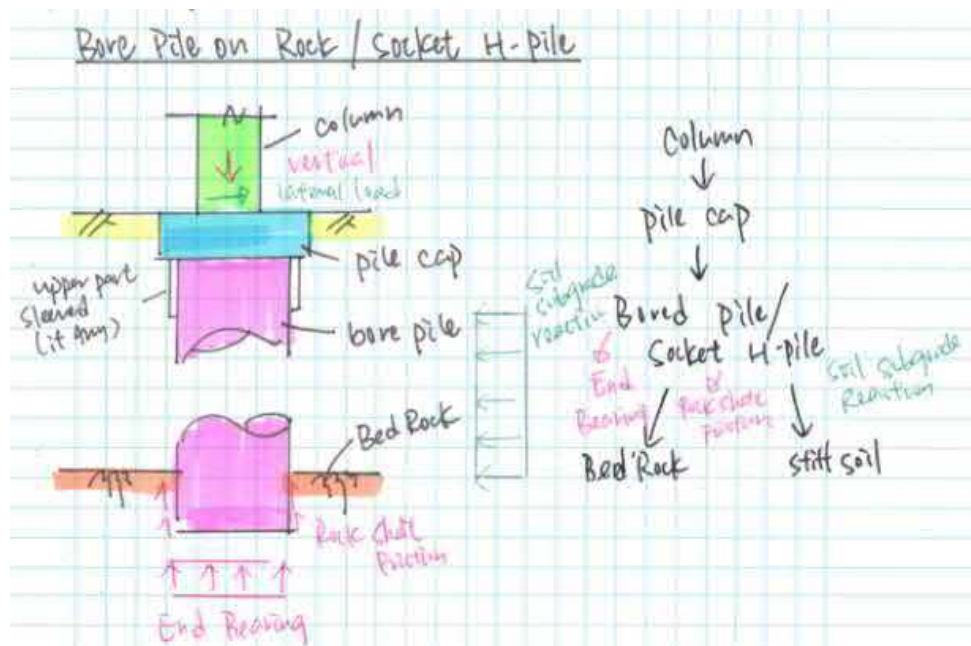 Bore Pile on Rock / Socket H-pile
column
vertical
lateral load
pile cap
upper part
sleeved
(if any)
bore pile
Bed Rock
Rock shaft
Friction
End Bearing
soil
subgrade
reaction
column
pile cap
Bored pile/
Socket H-pile
End
Bearing
Rock shaft
Friction
soil subgrade
Reaction
Bed Rock
stiff soil